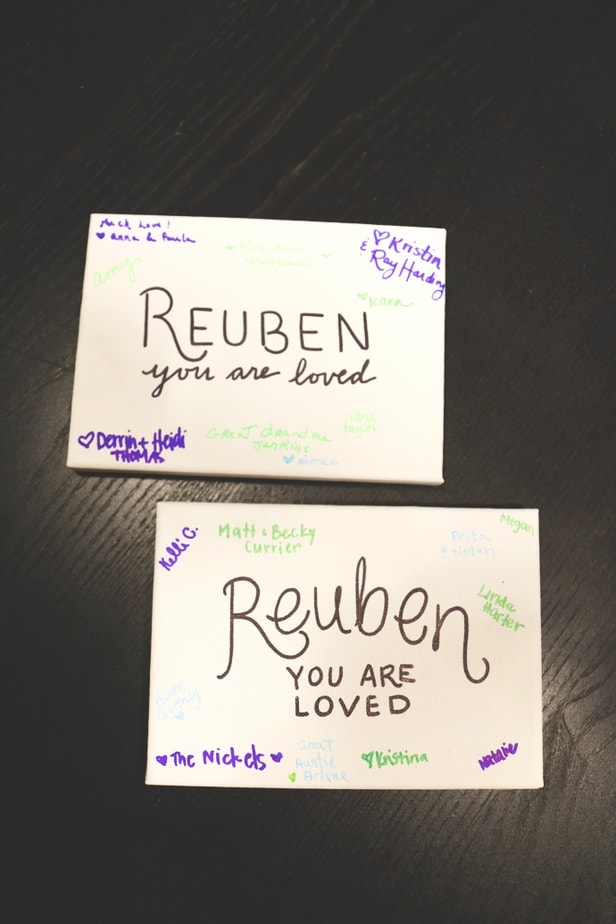 Much Love!
♥ anna & Paula
♡ Kristin
& Ray Harding
amy
♥ Kara
REUBEN
you are loved
anna
taylor
♡ Derrin + Heidi
THOMAS
Great Grandma
Jenkins
♥ aimee
Megan
Kelli C.
Matt & Becky
Currier
Brita
& Nolan
Linda
Harter
Reuben
YOU ARE
LOVED
Auntie
Courtney
♥
♥ The Nickels ♥
Great
Auntie
♥ Arlene
♡ Kristina
Natalie